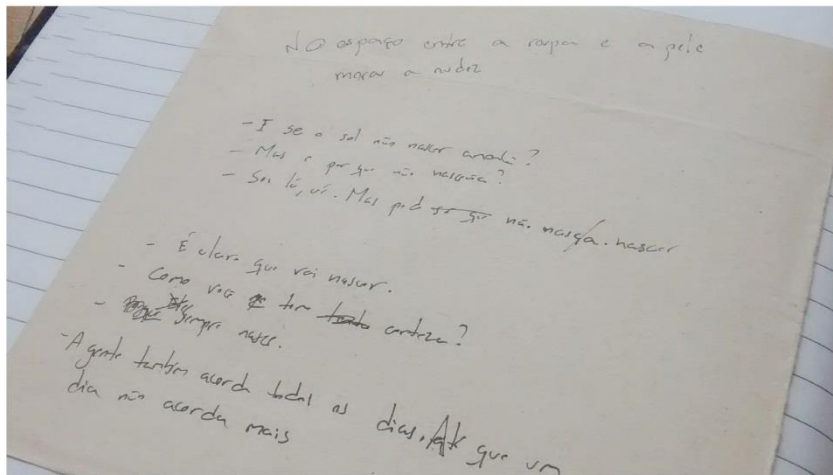 No espaço entre a roupa e a pele
mora a nudez
- E se o sol não nascer amanhã?
- Mas e por que não nasceria?
- Sei lá, ué. Mas pod não nasça. nascer
- É claro que vai nascer.
- Como você tem certeza?
- Sempre nasce.
- A gente também acorda todos os dias. Até que um
dia não acorda mais